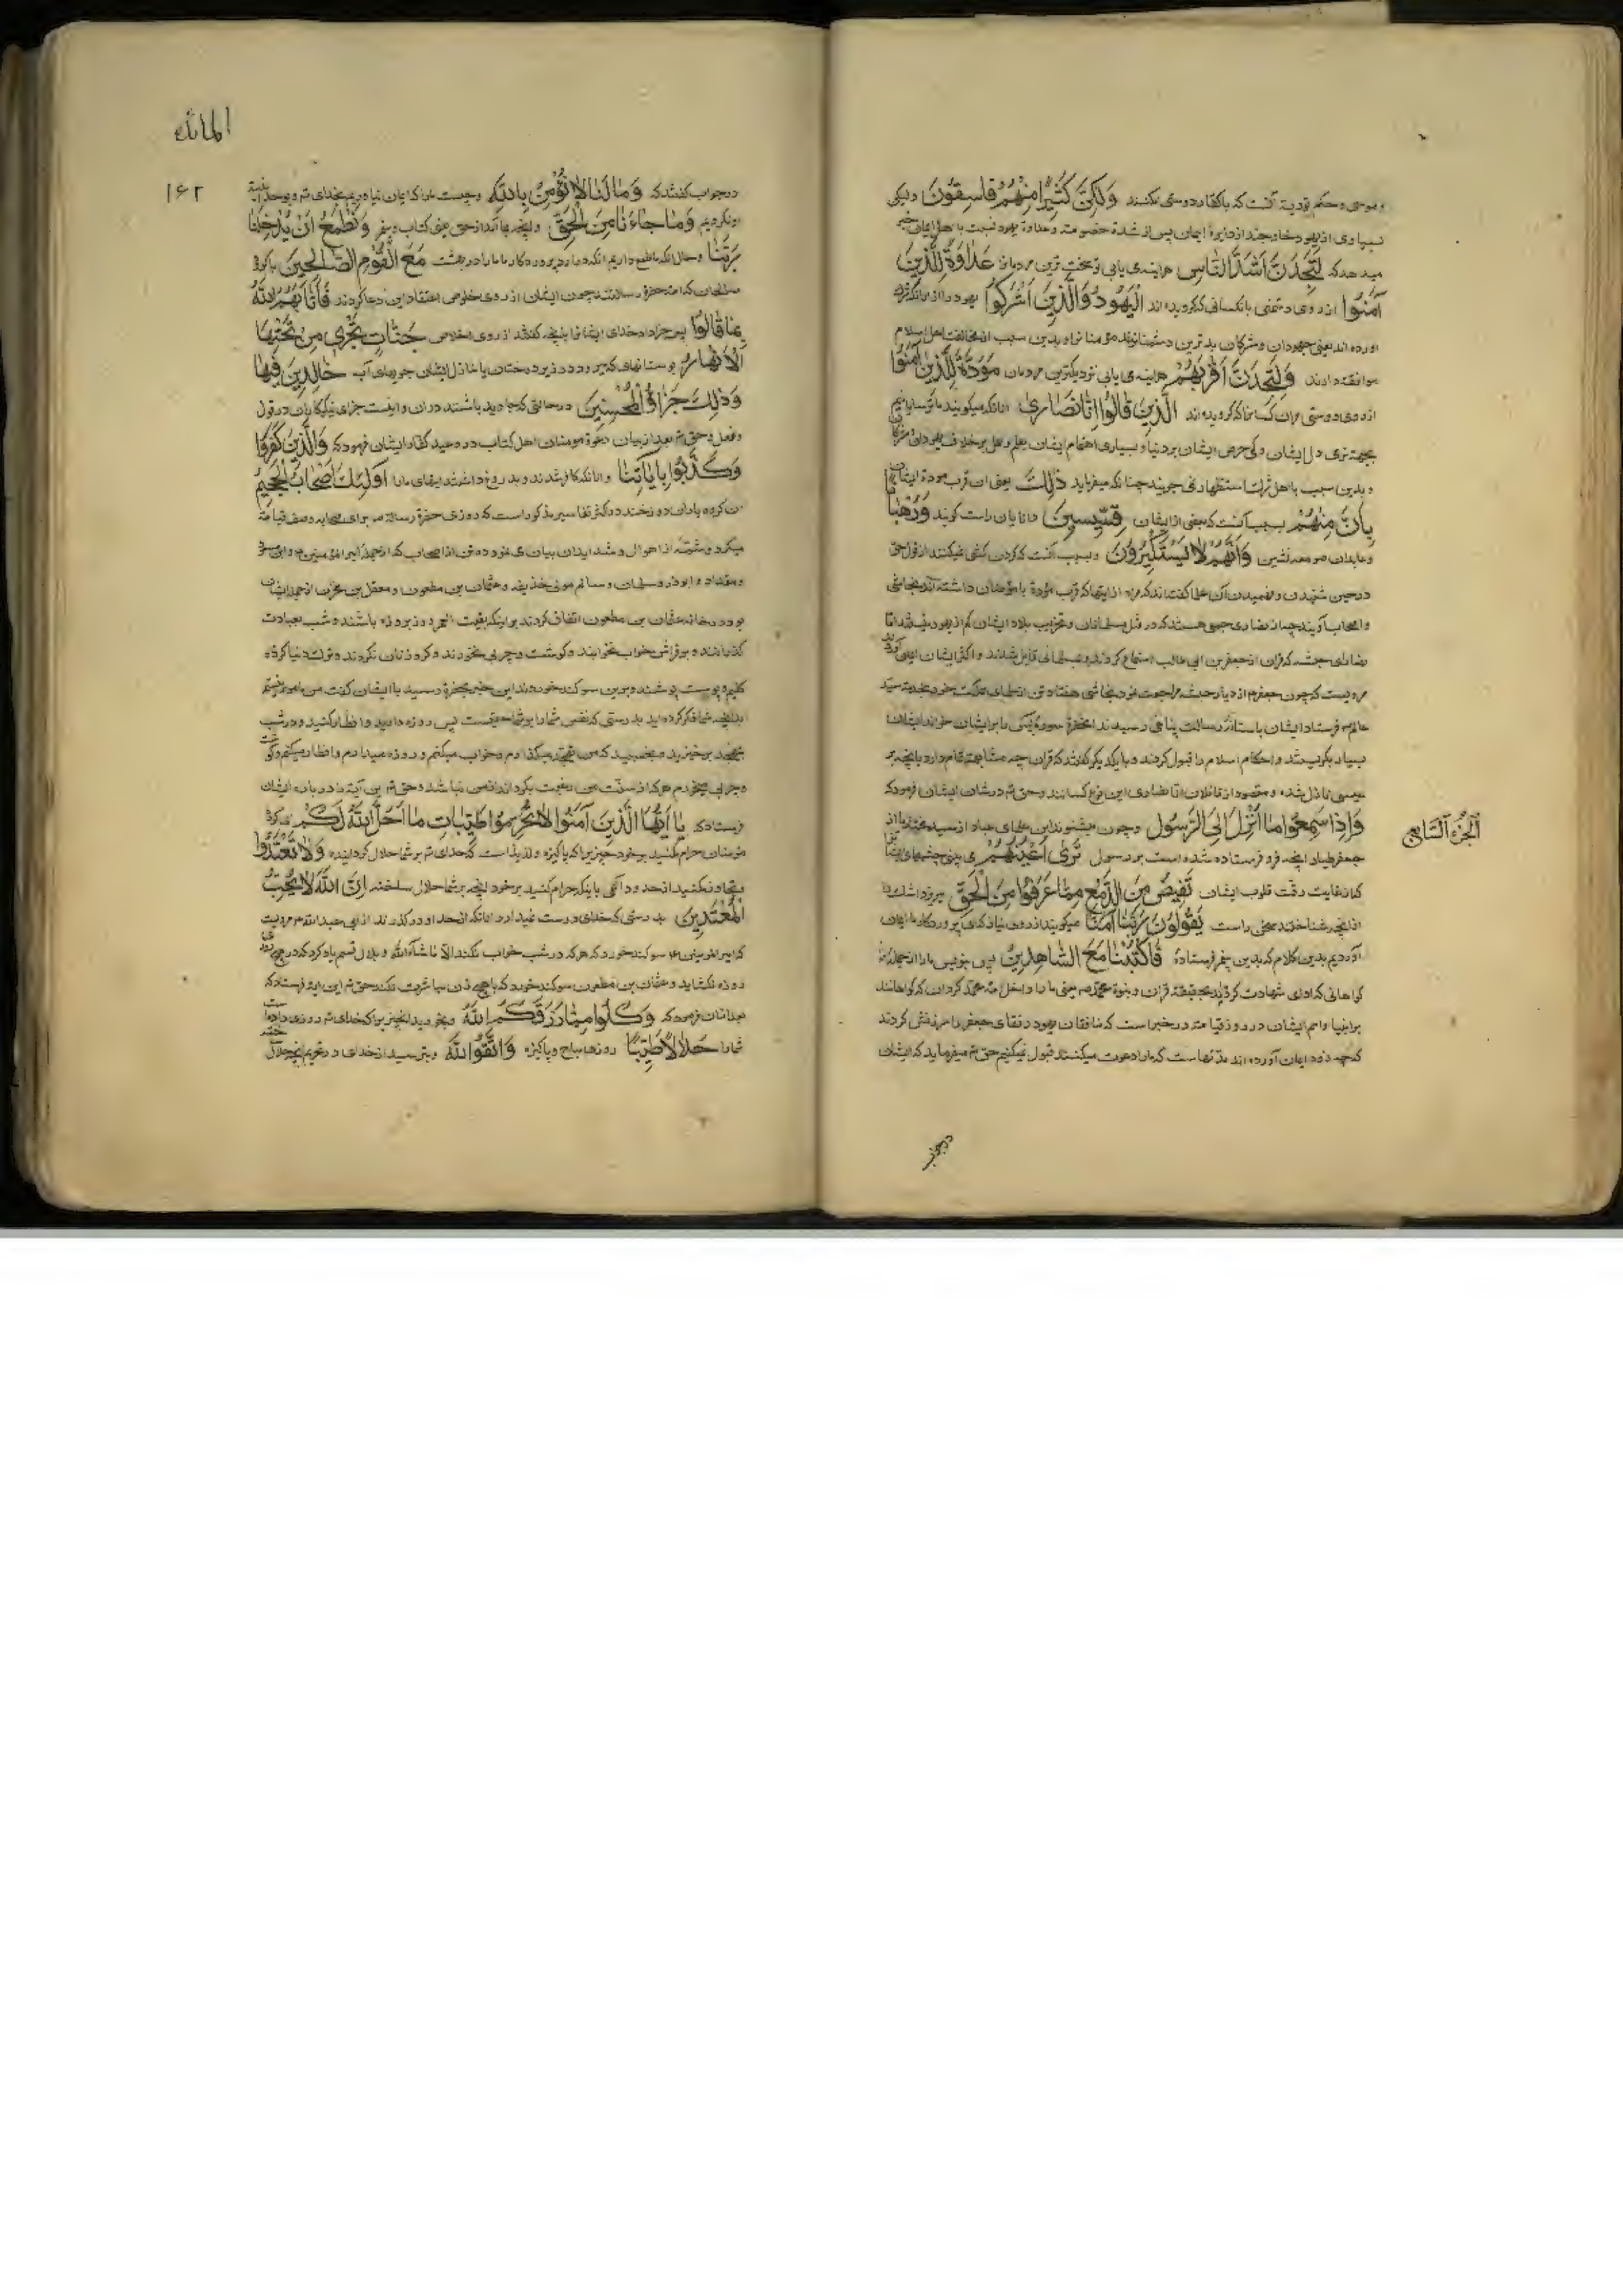 و موسی و حکم توریة آنست که با کفار دوستی نکنند وَلٰكِنَّ كَثِيرًا مِنْهُمْ فَاسِقُونَ ولیکن
بسیاری از یهود خارجند از دایرۀ ایمان پس از شدة خصومت و عداوة یهود نسبت با اهل ایمان خبر
میدهد که لَتَجِدَنَّ اَشَدَّ النَّاسِ هراینه می یابی تو سخت ترین مردمان عَدَاوَةً لِلَّذِينَ
آمَنُوا از روی دشمنی بانکسانی که گرویده اند الْيَهُودَ وَالَّذِينَ اَشْرَكُوا یهود را و آنانکه شرک
اورده اند یعنی جهودان و مشرکان بدترین دشمنانند مؤمنانرا و بدین سبب از مخالفت اهل اسلام
موافقند وَلَتَجِدَنَّ اَقْرَبَهُمْ هراینه می یابی نزدیکترین مردمان مَوَدَّةً لِلَّذِينَ آمَنُوا
از روی دوستی مران کسانرا که گرویده اند الَّذِينَ قَالُوا اِنَّا نَصَارٰى آنانکه میگویند ما ترسایانیم
بجهة نرمی دل ایشان و کمی حرص ایشان بر دنیا و بسیاری اهتمام ایشان بعلم و عمل بر خلاف یهودان و مشرکان
و بدین سبب باهل استظهار می جویند چنانکه میفرماید ذٰلِكَ یعنی ان قرب مودة ایشان
بِاَنَّ مِنْهُمْ بسبب آنست که بعضی از ایشان قِسِّيسِينَ دانایان راست گویند وَرُهْبَانًا
و عابدان صومعه نشین وَاَنَّهُمْ لَا يَسْتَكْبِرُونَ و بسبب آنست که گردن کشی نمیکنند از قول حق
در حین شنیدن و فهمیدن آن عطا گفته اند که مراد از اینها که قرب مودة با مؤمنان داشته اند نجاشی
و اصحاب اویند چه از نصاری جمعی هستند که در قتل مسلمانان و تخریب بلاد ایشان کم از یهود نیستند اما
نصارای حبشه که قران از جعفر بن ابی طالب استماع کردند و بمسلمانی قایل شدند و اکثر ایشان ایمان آوردند
مرویست که چون جعفر از دیار حبشه مراجعت نمود نجاشی هفتاد تن از علمای مملکت خود بخدمت سید
عالم فرستاد ایشان باستانۀ رسالت پناهی رسیدند انحضرة سورۀ یس را بر ایشان خواند ایشان
بسیار بگریستند و احکام اسلام را قبول کردند و با یکدیگر گفتند که قران چه مشابهة تمام دارد بانچه بر
عیسی نازل شده و مقصود از قائلان انا نصاری این نوع کسانند و حق تم در شان ایشان فرمود که
وَاِذَا سَمِعُوا مَا اُنْزِلَ اِلَى الرَّسُولِ و چون میشنوند این علمای عباد از سید مختار یا از
اَلْجُزْءُ السَّابِع
جعفر طیار انچه فرو فرستاده شده است بر رسول تَرٰى اَعْيُنَهُمْ می بینی چشمهای ایشانرا
که از غایت رقت قلوب ایشان تَفِيضُ مِنَ الدَّمْعِ مِمَّا عَرَفُوا مِنَ الْحَقِّ میریزد اشک را
از انچه شناختند سخنی راست يَقُولُونَ رَبَّنَا آمَنَّا میگویند از روی نیاز که ای پروردگار ما ایمان
آوردیم بدین کلام که بدین پیغمبر فرستادۀ فَاكْتُبْنَا مَعَ الشَّاهِدِينَ پس بنویس ما را از جمله
گواهانی که ادای شهادت کردند بحقیقة قران و نبوة محمد ص یعنی ما را داخل امة محمد گردان که گواهانند
بر انبیا و امم ایشان در روز قیامة در خبر است که منافقان یهود رفقای جعفر را سرزنش کردند
که چه زود ایمان آورده اند مدتهاست که ما را دعوت میکنند قبول نمیکنیم حق تم میفرماید که ایشان
در جواب
المائده
۱۶۲
در جواب گفتند که وَمَا لَنَا لَا نُؤْمِنُ بِاللّٰهِ و چیست ما را که ایمان نیاوریم بخدای تم و بوحدانیة
او نگرویم وَمَا جَاءَنَا مِنَ الْحَقِّ و بانچه بما آمد از حق یعنی کتاب و پیغمبر وَنَطْمَعُ اَنْ يُدْخِلَنَا
رَبُّنَا و حال انکه ما طمع داریم انکه درارد پروردگار ما ما را در بهشت مَعَ الْقَوْمِ الصَّالِحِينَ با گروه
صالحان که امة حضرة رسالتند چون ایشان از روی خلوص اعتقاد این دعا کردند فَاَثَابَهُمُ اللّٰهُ
بِمَا قَالُوا پس جزا داد خدای ایشانرا بانچه گفتند از روی اخلاص جَنَّاتٍ تَجْرِي مِنْ تَحْتِهَا
الْاَنْهَارُ بوستانهای که میرود در زیر درختان یا منازل ایشان جویهای آب خَالِدِينَ فِيهَا
وَذٰلِكَ جَزَاؤُ الْمُحْسِنِينَ در حالتی که جاوید باشند دران و اینست جزای نیکوکاران در قول
و فعل و حق تم بعد از بیان مومنان اهل کتاب در وعید کفار ایشان فرمود که وَالَّذِينَ كَفَرُوا
وَكَذَّبُوا بِآيَاتِنَا و انانکه کافر شدند و بدروغ داشتند ایتهای ما را اُولٰئِكَ اَصْحَابُ الْجَحِيمِ
ان گروه یاران دوزخند در اکثر تفاسیر مذکور است که روزی حضرة رسالة ص برای صحابه وصف قیامة
میکرد و شمۀ از احوال و شداید ان بیان می نمود ده تن از اصحاب که از جمله امیر المؤمنین و ابن مسعود
و مقداد و ابوذر و سلمان و سالم مولی حذیفه و عثمان بن مظعون و معقل بن مقرن از جمله ایشان
بود در خانه عثمان بن مظعون اتفاق کردند بر اینکه بقیت عمر روز بروزه باشند و شب بعبادت
گذرانند و بر فراش خواب نخوابند و گوشت و چربی نخورند و گرد زنان نگردند و ترک دنیا کرده
گلیم و پوست پوشند و برین سوگند خوردند این خبر بحضرة رسید با ایشان گفت من مامور نیستم
بدانچه شما فکر کرده اید بدرستی که نفس شما را بر شما حقیست پس روزه دارید و افطار کنید و در شب
بتهجد برخیزید و بخسپید که من تهجد میگذارم و خواب میکنم و روزه میدارم و افطار میکنم و گوشت
و چربی میخورم هر که از سنت من رغبت بگرداند از من نباشد و حق تم این آیة را در بارۀ ایشان
فرستاد که يَا اَيُّهَا الَّذِينَ آمَنُوا لَا تُحَرِّمُوا طَيِّبَاتِ مَا اَحَلَّ اللّٰهُ لَكُمْ ای گروه
مؤمنان حرام مکنید بر خود چیزیرا که پاکیزه و لذیذ است که خدای تم بر شما حلال گردانیده وَلَا تَعْتَدُوا
و تجاوز نکنید از حدود الهی بانکه حرام کنید بر خود انچه بر شما حلال ساخته اِنَّ اللّٰهَ لَا يُحِبُّ
الْمُعْتَدِينَ بدرستی که خدای دوست نمیدارد انانکه از حد او درگذرند از ابی عبد الله مرویست
که امیر المؤمنین ع سوگند خورد که هرگز در شب خواب نکند الا ما شاءالله و بلال قسم یاد کرد که در هیچ روز
روزه نگشاید و عثمان بن مظعون سوگند خورد که با هیچ زن مباشرت نکند حق تم این آیه فرستاد که
بعد ازان فرمود که وَكُلُوا مِمَّا رَزَقَكُمُ اللّٰهُ و بخورید انچیز را که خدای تم روزی داده است
شما را حَلَالًا طَيِّبًا روزیها مباح و پاکیزه وَاتَّقُوا اللّٰهَ و بترسید از خدای در تحریم انچه حلال